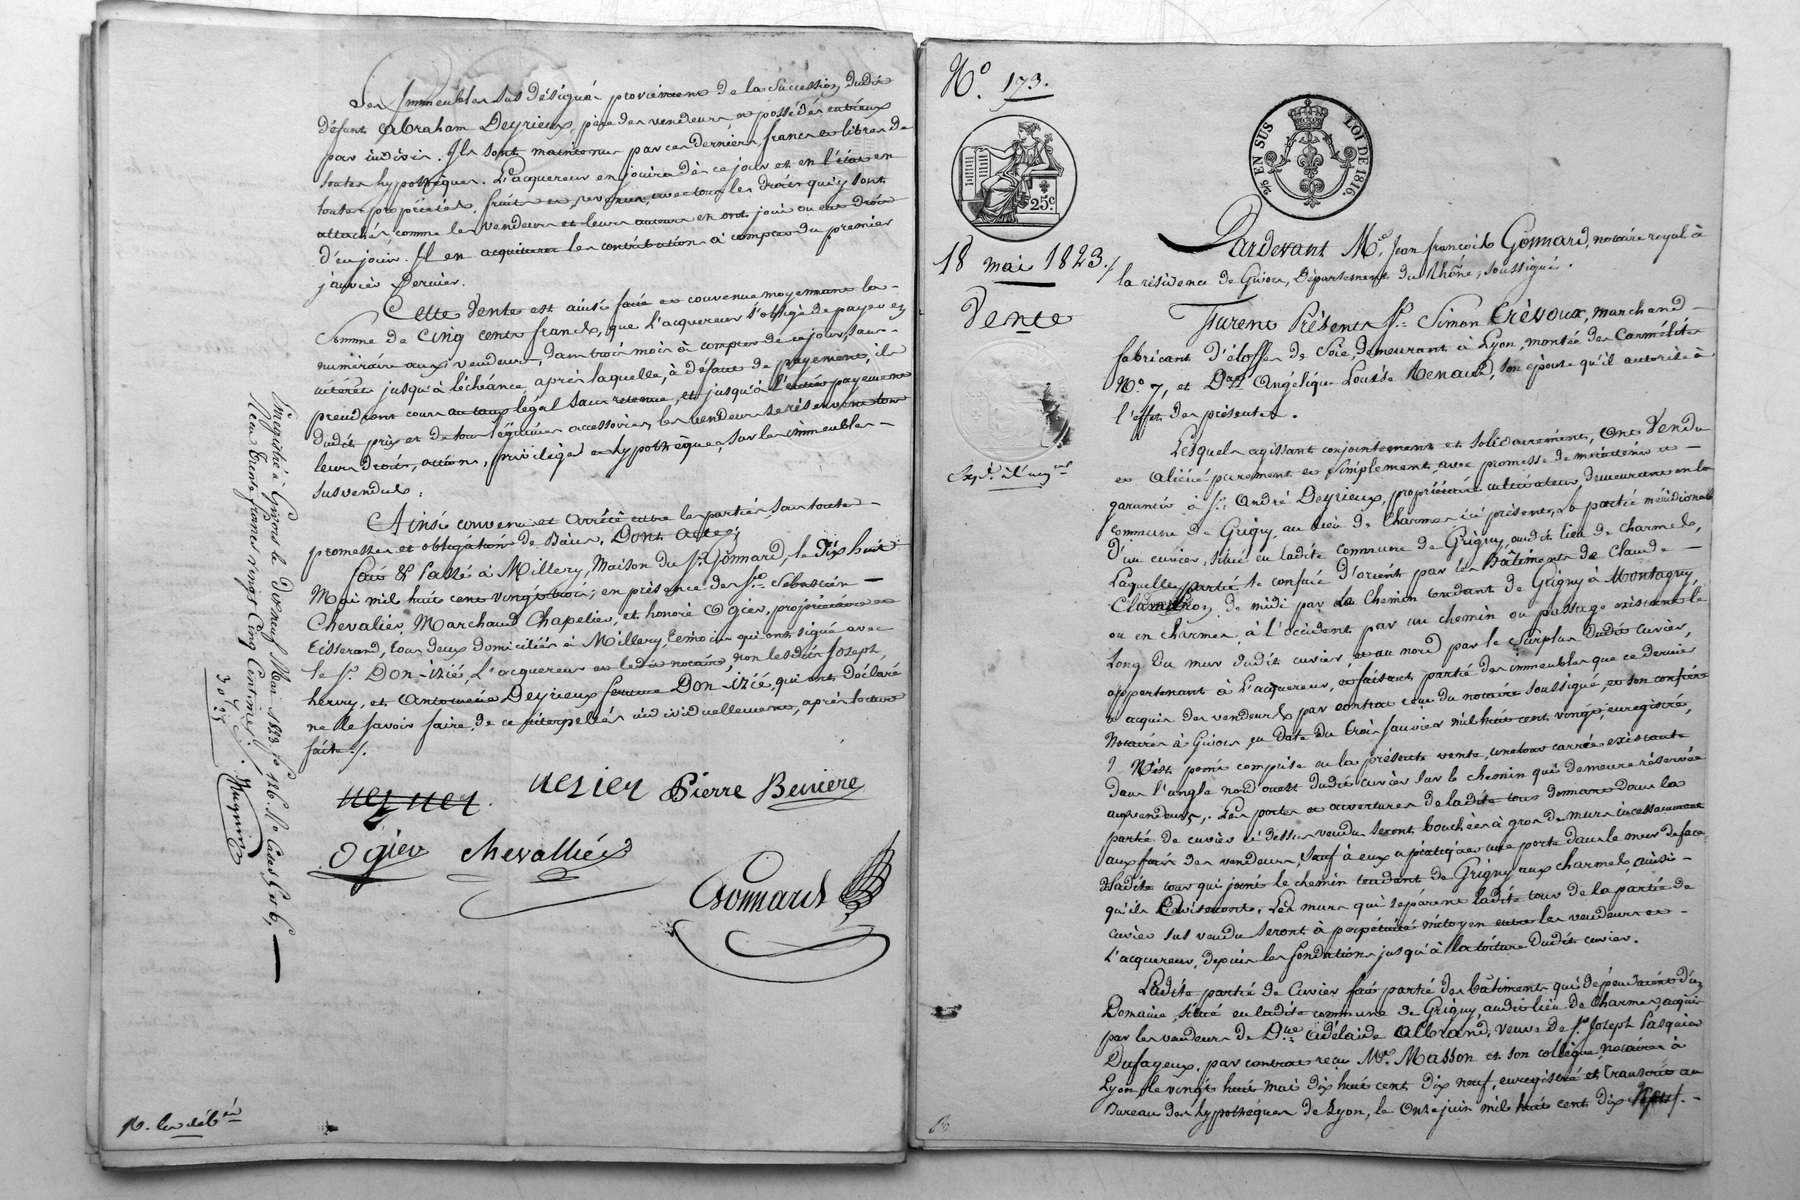 Les Immeubles sus désignés proviennent de la Succession dudit
défunt Abraham Deyrieux, père des vendeurs et possédés entr'eux
par indivis. Ils sont maintenus par ces derniers, francs et libres de
toutes hypothèques. L'acquereur en jouira dès ce jour et en l'état en
toutes propriétés, fruits et revenus, avec tous les droits qui y sont
attachés, comme les vendeurs et leurs auteurs en ont joui ou eu droit
d'en jouir. Il en acquittera les contributions à compter du premier
janvier Dernier.
Cette Vente est ainsi faite et convenue moyennant la
Somme de Cinq cents francs, que l'acquereur s'oblige de payer en
numéraire aux vendeurs, dans trois mois à compter de ce jour, sans
intérêt jusqu'à l'échéance, après laquelle, à défaut de payement, ils
prendront cours au taux légal sans retenue, et jusqu'à l'entier payement
dudit prix et de tous légitimes accessoires, les vendeurs se réservent tous
leurs droits, actions, privilèges et hypothèques, sur les immeubles
sus vendus.
Ainsi convenu et arrêté entre les parties, sous toutes
promesses et obligations de Biens. Dont acte;
fait & Passé à Millery, Maison du Sr. Gonnard, le dix huit
Mai mil huit cent vingt trois; en présence de Srs. Sébastien
Chevalier, Marchand Chapelier, et honoré Ogier, propriétaire et
Tisserand, tous deux domiciliés à Millery, témoins qui ont signé avec
le Sr. Don-izié, L'acquereur et ledit notaire, non lesdits Joseph,
henry, et Antoinette Deyrieux femme Don-izié, qui ont déclaré
ne le savoir faire, de ce interpellés individuellement, après lecture
faite./.
Pierre Beniere
Ogier chevallier
Gonnard
Enregistré à Givors le Dixneuf Mai 1823, fo 126. Ro Cases 5 et 6,
Reçu Trente francs vingt Cinq Centimes.
No. 173.
25c.
2/5 EN SUS
LOI DE 1816.
18 mai 1823./
Vente
Pardevant Me. Jean françois Gonnard, notaire royal à
la résidence de Givors, Département du Rhône, soussigné.
Furent Présents Sr. Simon Crèvoux, marchand
fabricant d'étoffes de Soie, demeurant à Lyon, montée des Carmélites
No. 7, et Dme Angélique Louise Renaud, son épouse qu'il autorise à
l'effet des présentes.
Lesquels agissant conjointement et solidairement, Ont Vendu
et aliéné purement et simplement, avec promesse de maintenir et
garantir à Sr. André Deyrieux, propriétaire cultivateur, demeurant en la
commune de Grigny, au lieu de Charmes ici présent, la partie méridionale
D'un cuvier, situé en ladite commune de Grigny, audit lieu de Charmes,
Laquelle partie se confine d'orient par les Bâtiments de Claude
de midi par le Chemin tendant de Grigny à Montagny,
ou en charmes, à l'occident par un chemin ou passage existant le
long du mur dudit cuvier, et au nord par le Surplus dudit cuvier,
appartenant à L'acquereur, et faisant partie des immeubles que ce dernier
a acquis des vendeurs par contrat reçu du notaire soussigné, et son confrère
Notaires à Givors, en date du trois janvier mil huit cent vingt, enregistré,
N'est point comprise en la présente vente, une tour carrée existante
dans l'angle nord ouest dudit cuvier sur le chemin qui demeure réservée
aux vendeurs. Les portes et ouvertures de ladite tour donnant dans la
partie de cuvier ci dessus vendu seront bouchées à gros de murs incessamment
aux frais des vendeurs, sauf à eux a pratiquer une porte dans le mur de face
de ladite tour qui joint le chemin tendant de Grigny aux charmes, ainsi
qu'ils l'aviseront. Les murs qui séparent ladite tour de la partie de
cuvier sus vendu seront à perpétuité mitoyen entre les vendeurs et
L'acquereur, depuis les fondations jusqu'à la toiture dudit cuvier.
Ladite partie de Cuvier fait partie des bâtiments qui dépendaient d'un
Domaine, situé en ladite commune de Grigny, audit lieu de Charmes, acquis
par les vendeurs de Dme Adélaide Albrand, veuve de Sr. Joseph Pasquier
Dufageux, par contrat reçu Me. Masson et son collègue, notaires à
Lyon, le vingt huit mai dix huit cent dix neuf, enregistré et transcrit au
Bureau des hypothèques de Lyon, le Onze juin mil huit cent dix Neuf.